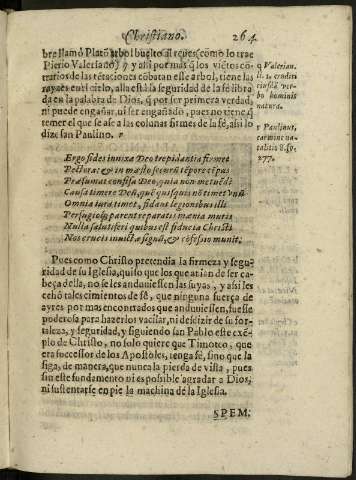 Christiano. 264
bre llamó Platõ arbol buelto al reues (como lo trae
Pierio Valeriano) q y assi por mas q̃ los viẽtos cõ
trarios de las tẽtaciones cõbatan este arbol, tiene las
rayzes en el cielo, alla està la seguridad de su fè libra
da en la palabra de Dios, q̃ por ser primera verdad,
ni puede engañar, ni ser engañado, pues no tiene q̃
temer el que se ase a las colunas firmes de la fè, assi lo
dize san Paulino. r
q Valerian.
eruditi
eiusdẽ ver-
bo hominis
natura.
r Paulinus,
carmine na-
talitis 8. fo.
277.
Ergo fides innixa Deo trepidantia firmet
Pectora: & in mœsto securũ tẽpore tẽpus
Præsumat confisa Deo, quia non metuẽdi
Causa timere Deũ, quẽ quisquis nõ timet vnũ
Omnia iura timet, fidant legionibus illi
Perfugiosq; parent reparatis mœnia muris
Nulla salutiferi quibus est fiducia Christi
Nos crucis inuictæ signũ, & cõfessio munit.
Pues como Christo pretendia la firmeza y segu-
ridad de su Iglesia, quiso que los que auian de ser ca-
beça della, no se les anduuiessen las suyas, y assi les
echó tales cimientos de fè, que ninguna fuerça de
ayres por mas encontrados que anduuiessen, fuesse
poderosa para hazerlos vacilar, ni desdizir de su for-
taleza, y seguridad, y siguiendo san Pablo este exẽ-
plo de Christo, no solo quiere que Timoteo, que
era successor de los Apostoles, tenga fè, sino que la
siga, de manera, que nunca la pierda de vista, pues
sin este fundamento ni es posible agradar a Dios,
ni sustentarse en pie la machina de la Iglesia.
SPEM.